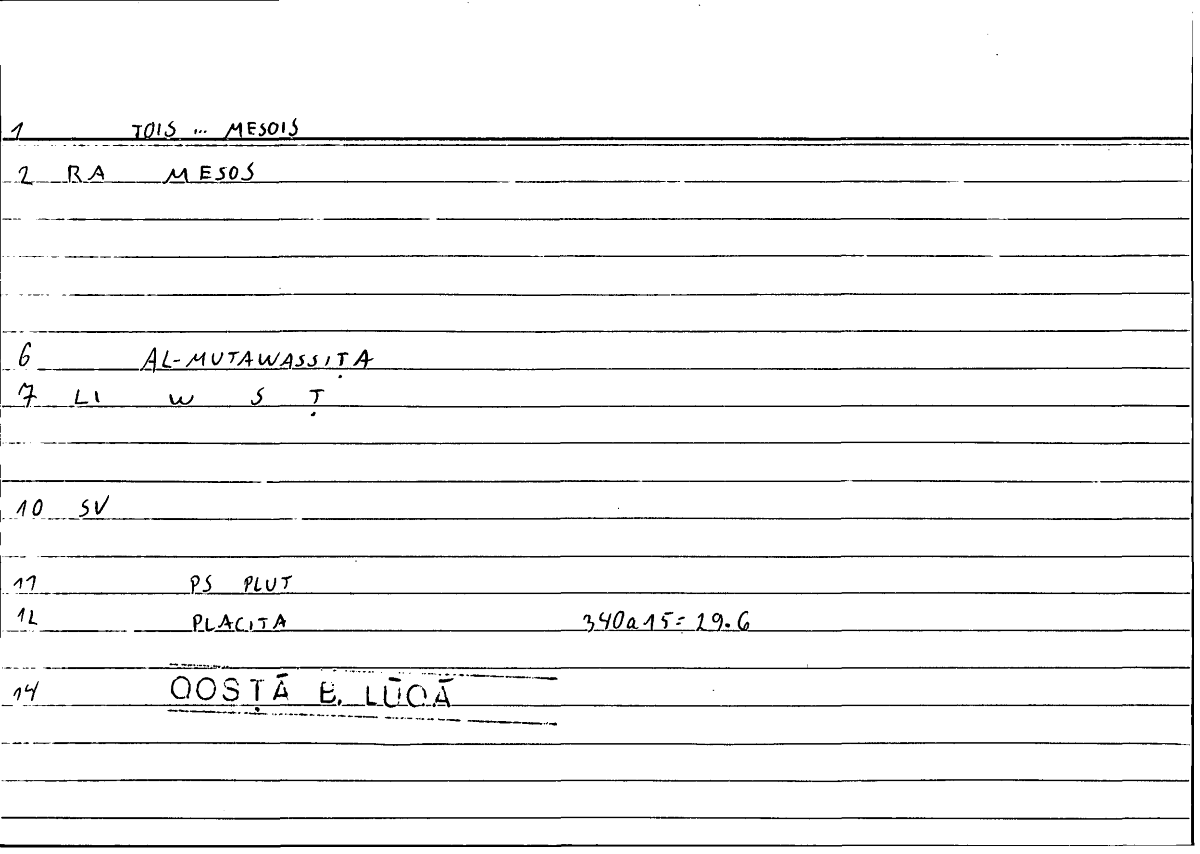 1 TOIS ... MESOIS
2 RA MESOS
6 AL-MUTAWASSIṬA
7 LI W S Ṭ
10 SV
11 PS PLUT
12 PLACITA 340a15 = 19.6
14 QOSṬĀ B. LŪQĀ